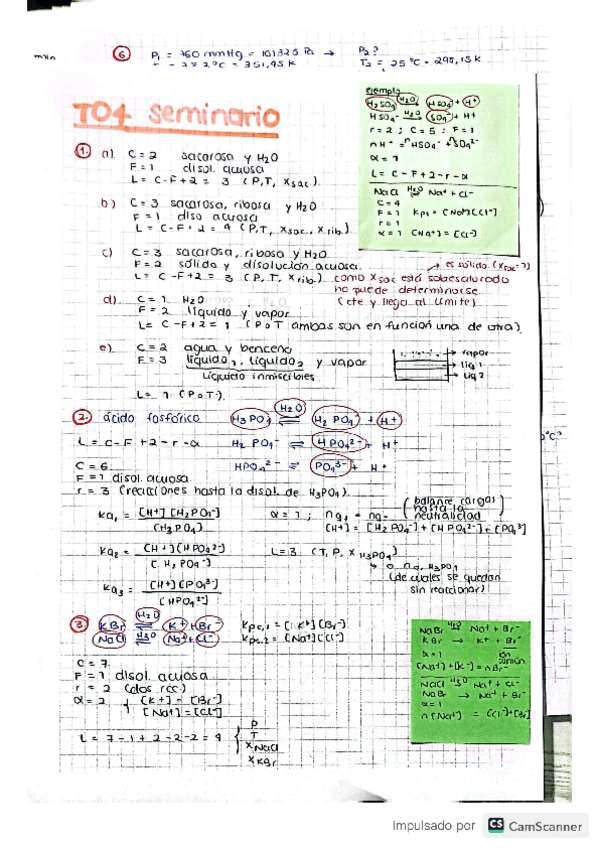 6 P₁ = 760 mmHg = 101325 Pa → P₂?
T₂ = 25 °C = 298,15 K
T04 Seminario
ejemplo
H₂SO₄ H₂O HSO₄⁻ + H⁺
HSO₄⁻ H₂O SO₄²⁻ + H⁺
r = 2 ; C = 5 ; F = 1
α = 1
L = C - F + 2 - r - α
NaCl H₂O Na⁺ + Cl⁻
C = 4
F = 1 Kps = [Na⁺][Cl⁻]
r = 1
α = 1 [Na⁺] = [Cl⁻]
1. a) C = 2 sacarosa y H₂O
F = 1 disol. acuosa
L = C - F + 2 = 3 (P, T, xsac.)
b) C = 3 sacarosa, ribosa y H₂O
F = 1 diso acuosa
L = C - F + 2 = 4 (P, T, xsac., xrib.)
c) C = 3 sacarosa, ribosa y H₂O
F = 2 sólido y disolución acuosa. → es sólida (xsac = 1)
L = C - F + 2 = 3 (P, T, xrib) como xsac está sobresaturado
no puede determinarse
(cte y llega al límite)
d) C = 1 H₂O
F = 2 líquido y vapor
L = C - F + 2 = 1 (P o T ambas son en función una de otra).
e) C = 2 agua y benceno
F = 3 líquido₁, líquido₂ y vapor
líquido inmiscibles
L = 1 (P o T).
vapor
liq 1
liq 2
2. ácido fosfórico H₃PO₄ H₂O ⇌ H₂PO₄⁻ + H⁺
L = C - F + 2 - r - α H₂PO₄⁻ ⇌ HPO₄²⁻ + H⁺
C = 6 HPO₄²⁻ ⇌ PO₄³⁻ + H⁺
F = 1 disol. acuosa
r = 3 (reacciones hasta la disol. de H₃PO₄).
Ka₁ = [H⁺][H₂PO₄⁻] / [H₃PO₄] α = 1 ; nq₊ = nq₋ (balance cargas hasta la neutralidad)
[H⁺] = [H₂PO₄⁻] + [HPO₄²⁻] + [PO₄³⁻]
Ka₂ = [H⁺][HPO₄²⁻] / [H₂PO₄⁻] L = 3 (T, P, xH₃PO₄)
(de cuales se quedan
sin reaccionar)
Ka₃ = [H⁺][PO₄³⁻] / [HPO₄²⁻]
3. KBr H₂O ⇌ K⁺ + Br⁻ Kps,1 = [K⁺][Br⁻]
NaCl H₂O ⇌ Na⁺ + Cl⁻ Kps,2 = [Na⁺][Cl⁻]
C = 7
F = 1 disol. acuosa
r = 2 (dos rcc)
α = 2 { [K⁺] = [Br⁻]
[Na⁺] = [Cl⁻]
L = 7 - 1 + 2 - 2 - 2 = 4 { P
T
xNaCl
xKBr
NaBr H₂O Na⁺ + Br⁻
KBr → K⁺ + Br⁻
α = 1 ión común
[Na⁺] + [K⁺] = nBr⁻
NaCl H₂O Na⁺ + Cl⁻
NaBr → Na⁺ + Br⁻
α = 1
n[Na⁺] = [Cl⁻] + [Br]
Impulsado por CS CamScanner